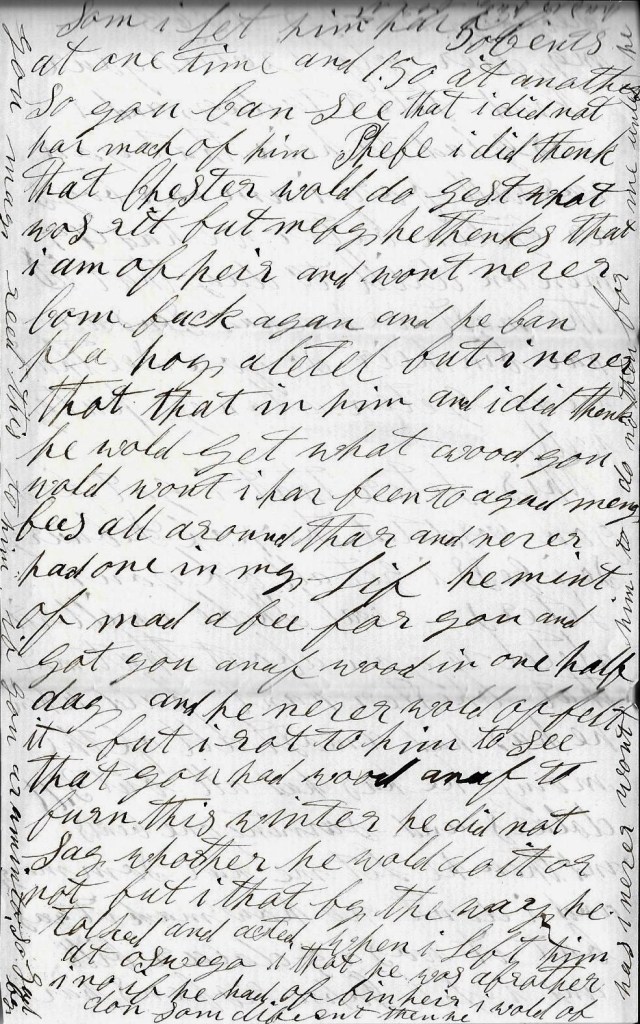 Som i let him hav 50 cents
at one time and 1.50 at anather
So you Can See that i did not
hav mach of him Phebe i did thenk
that Chester wold do gest what
was rit but mebey he thinks that
i am of heir and wont never
Com back agan and he Can
pla hog a letel but i never
thot that in him and i did thenk
he wold get what wood you
wold wont i hav been to a gad meny
bees all around thar and never
had one in my Lif he mint
of mad a bee for you and
got you anaf wood in one half
day and he never wold of felt
it but i rot to him to see
that you had wood anaf to
burn this winter he did not
Say whother he wold do it or
not but i that by the way he
talked and acted when i left him
at oswego i that he was a brother
in if he had of bin heir i wold of
don som diferent then he
has i never wont to him to do that for
you may reed this to him if you ar a mind to So Good
by